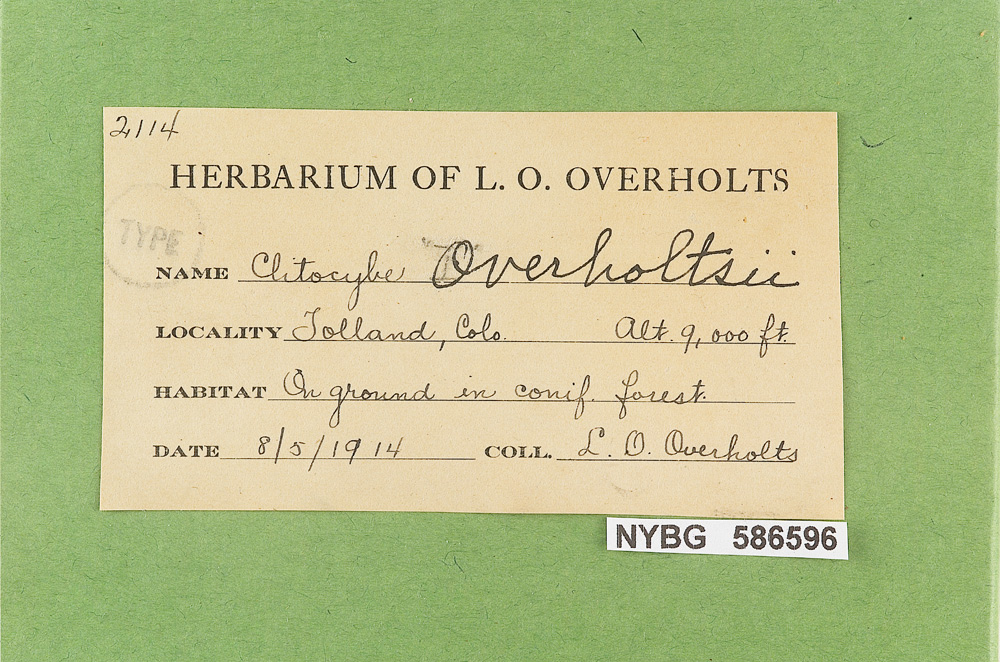 2114
HERBARIUM OF L. O. OVERHOLTS
TYPE
NAME Clitocybe Overholtsii
LOCALITY Tolland, Colo. Alt. 9,000 ft.
HABITAT On ground in conif. forest.
DATE 8/5/1914 COLL. L. O. Overholts
NYBG 586596